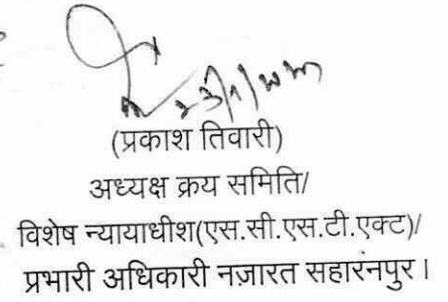 (प्रकाश तिवारी)
अध्यक्ष क्रय समिति/
विशेष न्यायाधीश(एस.सी.एस.टी.एक्ट)/
प्रभारी अधिकारी नज़ारत सहारनपुर।